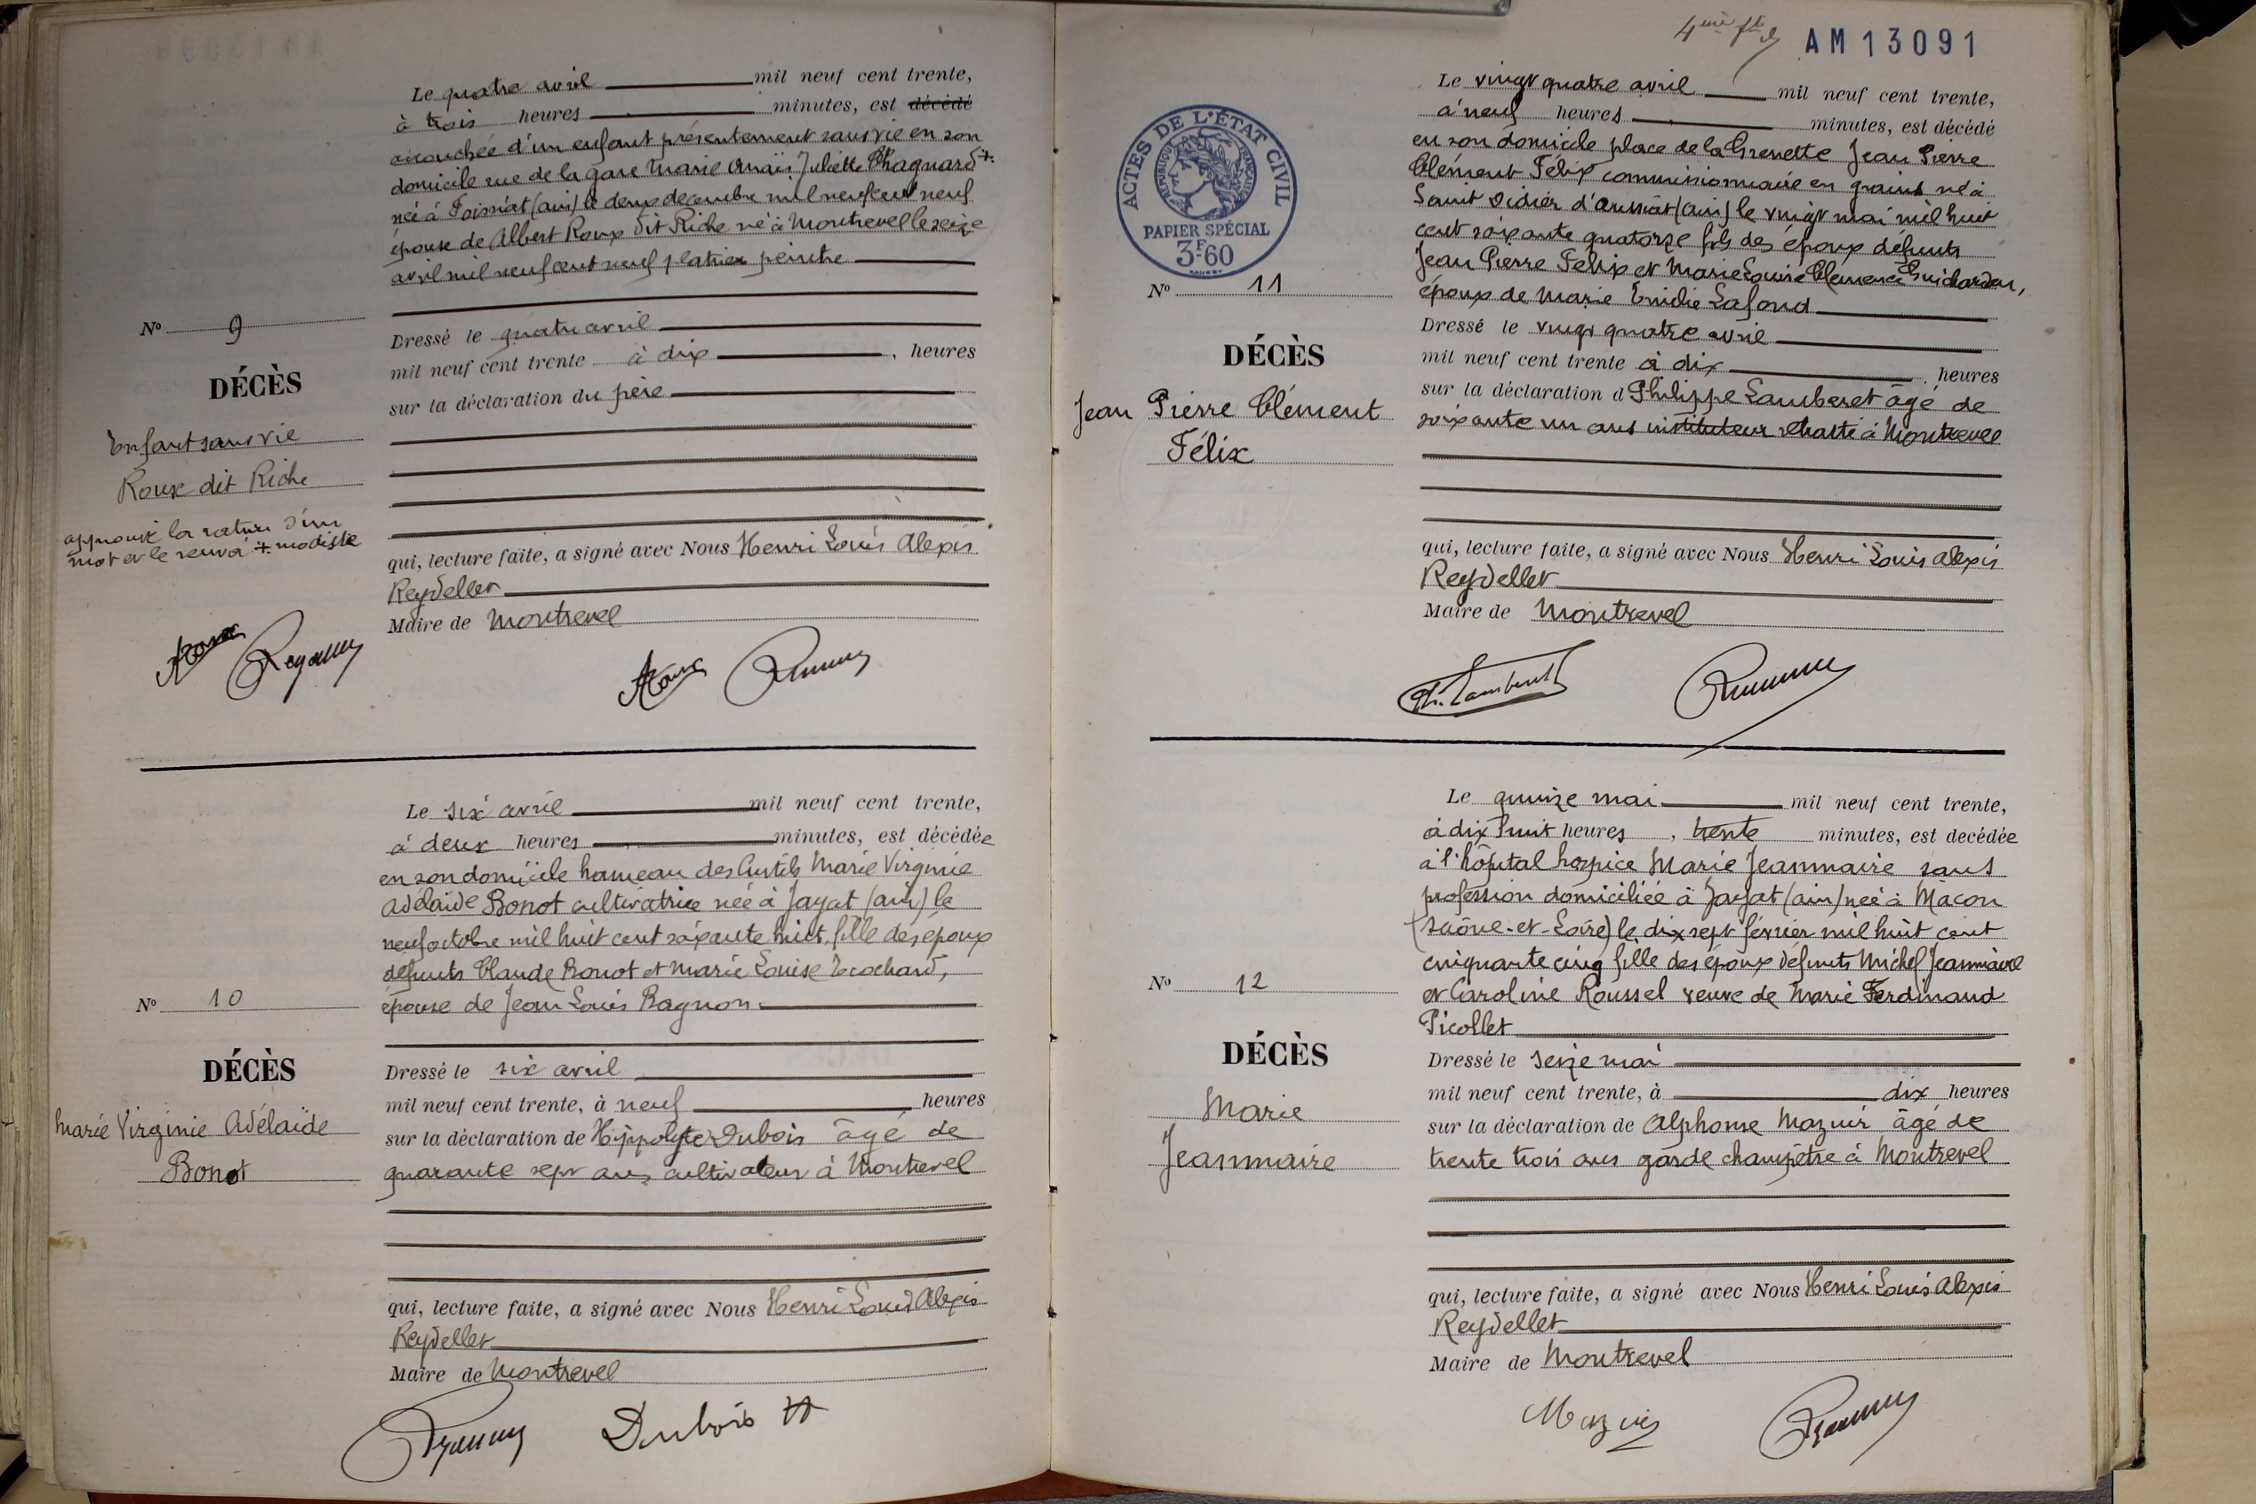 Le quatre avril mil neuf cent trente,
à trois heures minutes, est décédé
accouchée d'un enfant présentement sans vie en son
domicile rue de la gare Marie Anaïs Juliette Chagnard +
née à Foissiat (ain) le deux décembre mil neuf cent neuf
épouse de Albert Roux dit Riche né à Montrevel le seize
avril mil neuf cent neuf platrier peintre
Nº 9
DÉCÈS
Enfant sans vie
Roux dit Riche
approuvé la rature d'un
mot et le renvoi + modiste
Dressé le quatre avril
mil neuf cent trente à dix, heures
sur la déclaration du père
qui, lecture faite, a signé avec Nous Henri Louis Alexis
Reydellet
Maire de Montrevel
Le six avril mil neuf cent trente,
à deux heures minutes, est décédée
en son domicile hameau des Curtils Marie Virginie
Adélaïde Bonot cultivatrice née à Jayat (ain) le
neuf octobre mil huit cent soixante huit, fille des époux
défunts Claude Bonot et Marie Louise
épouse de Jean Louis Bagnon
Nº 10
DÉCÈS
Marie Virginie Adélaïde
Bonot
Dressé le six avril
mil neuf cent trente, à neuf heures
sur la déclaration de Hippolyte Dubois âgé de
quarante sept ans, cultivateur à Montrevel
qui, lecture faite, a signé avec Nous Henri Louis Alexis
Reydellet
Maire de Montrevel
Dubois H
4ème ft
AM13091
ACTES DE L'ÉTAT CIVIL
RÉPUBLIQUE FRANÇAISE
PAPIER SPÉCIAL
3F-60
Le vingt quatre avril mil neuf cent trente,
à neuf heures minutes, est décédé
en son domicile place de la Grenette Jean Pierre
Clément Félix commissionnaire en grains né à
Saint Didier d'Aussiat (ain) le vingt mai mil huit
cent soixante quatorze fils des époux défunts
Jean Pierre Félix et Marie Louise Clémence Guichardon,
époux de Marie Lafond
Nº 11
DÉCÈS
Jean Pierre Clément
Félix
Dressé le vingt quatre avril
mil neuf cent trente à dix heures
sur la déclaration d Philippe Lamberet âgé de
soixante un ans instituteur retraité à Montrevel
qui, lecture faite, a signé avec Nous Henri Louis Alexis
Reydellet
Maire de Montrevel
Ph. Lamberet
Le quinze mai mil neuf cent trente,
à dix huit heures, trente minutes, est decédée
à l'hôpital hospice Marie Jeanmaire sans
profession domiciliée à Jayat (ain) née à Macon
(Saône-et-Loire) le dix sept février mil huit cent
cinquante cinq fille des époux défunts Michel Jeanmaire
et Caroline Roussel veuve de Marie Ferdinand
Picollet
Nº 12
DÉCÈS
Marie
Jeanmaire
Dressé le seize mai
mil neuf cent trente, à dix heures
sur la déclaration de Alphonse Mazuir âgé de
trente trois ans garde champêtre à Montrevel
qui, lecture faite, a signé avec Nous Henri Louis Alexis
Reydellet
Maire de Montrevel
Mazuir